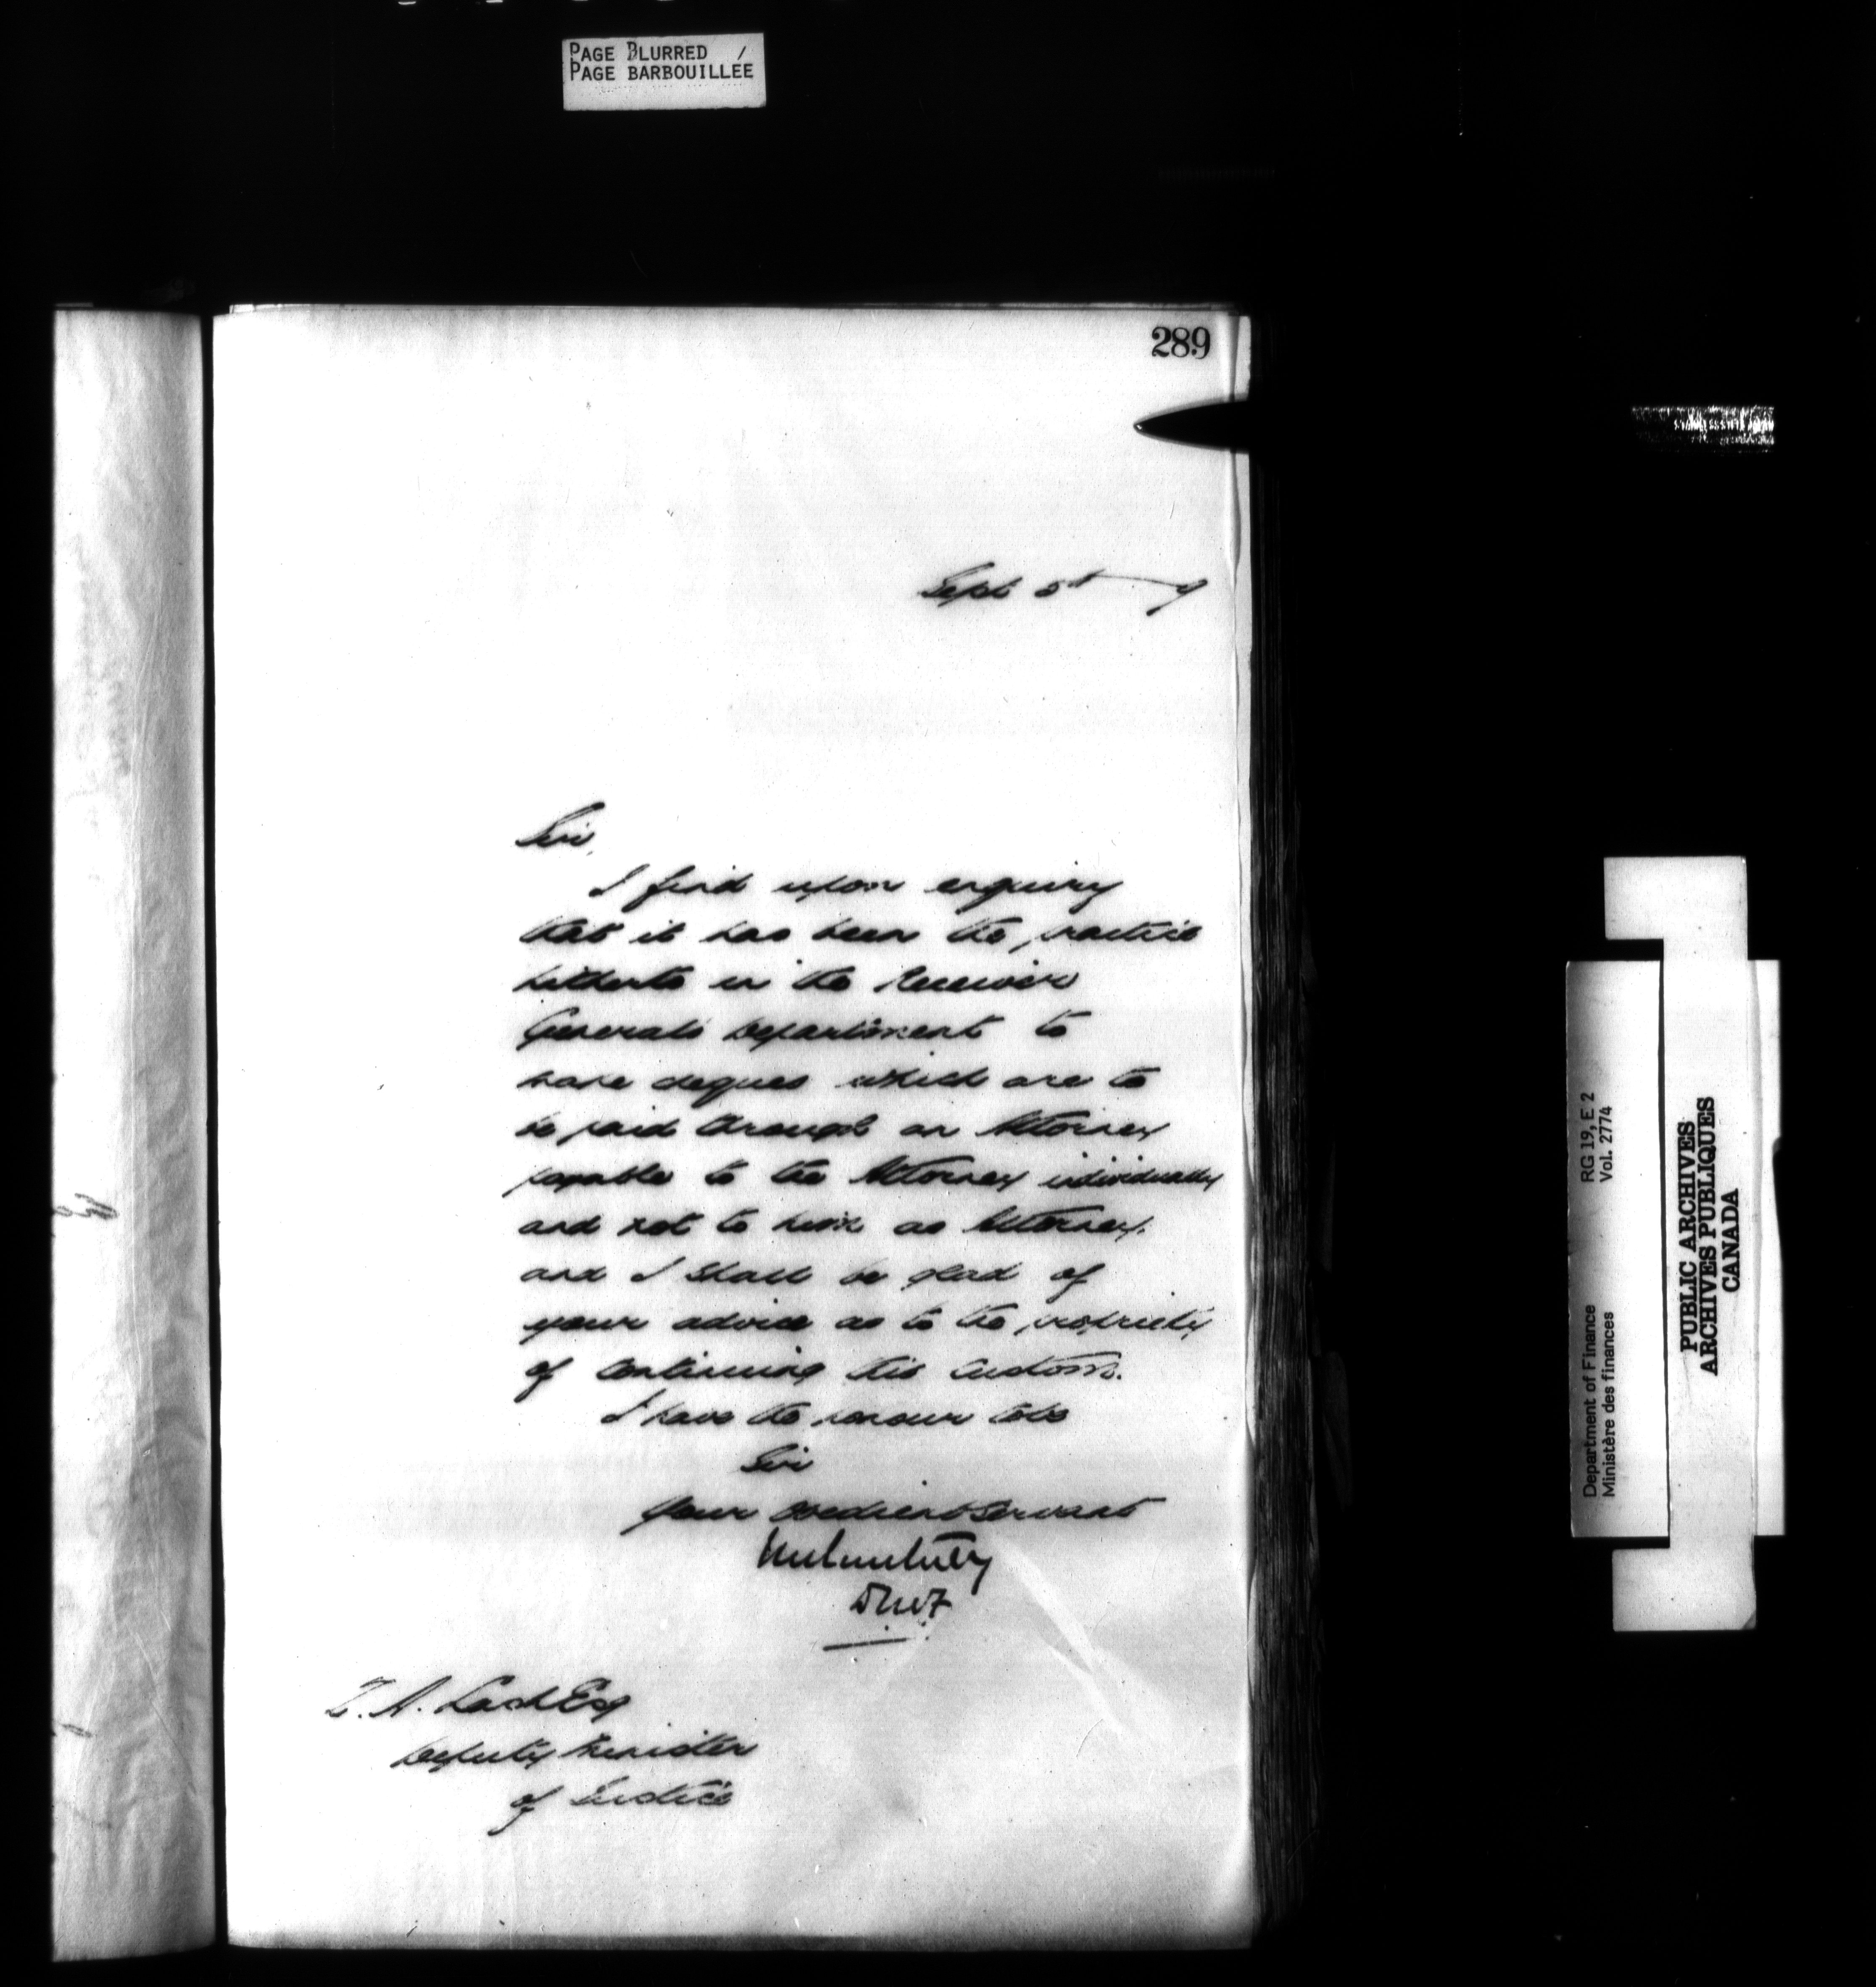 PAGE BLURRED /
PAGE BARBOUILLEE
289
Sept 5th 9
Sir,
I find upon enquiry
that it has been the practice
hitherto in the Receiver
Generals Department to
make cheques which are to
be paid through an Attorney
payable to the Attorney individually
and not to him as Attorney.
and I shall be glad of
your advice as to the propriety
of continuing this custom.
I have the honour to be
Sir
Your obedient Servant
DMF
Z. A. Lash Esq
Deputy Minister
of Justice
Department of Finance RG 19, E 2
Ministère des finances Vol. 2774
PUBLIC ARCHIVES
ARCHIVES PUBLIQUES
CANADA